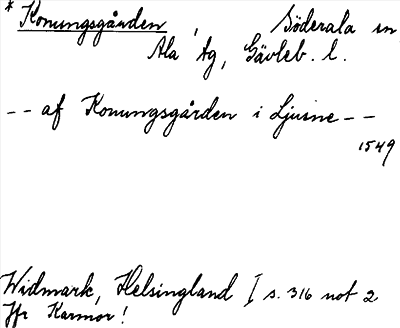 * Konungsgården, Söderala sn
Ala tg, Gävleb. l.
-- af Konungsgården i Ljusne --
1549
Widmark, Helsingland I s. 316 not 2
Jfr Karmor!